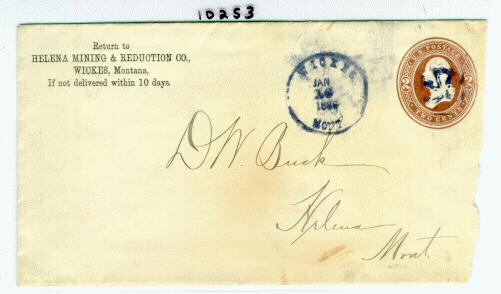 10253
Return to
HELENA MINING & REDUCTION CO.,
WICKES, Montana,
If not delivered within 10 days.
WICKES
JAN
MONT
U.S. POSTAGE
TWO CENTS
D W. Buck
Helena
Mont.